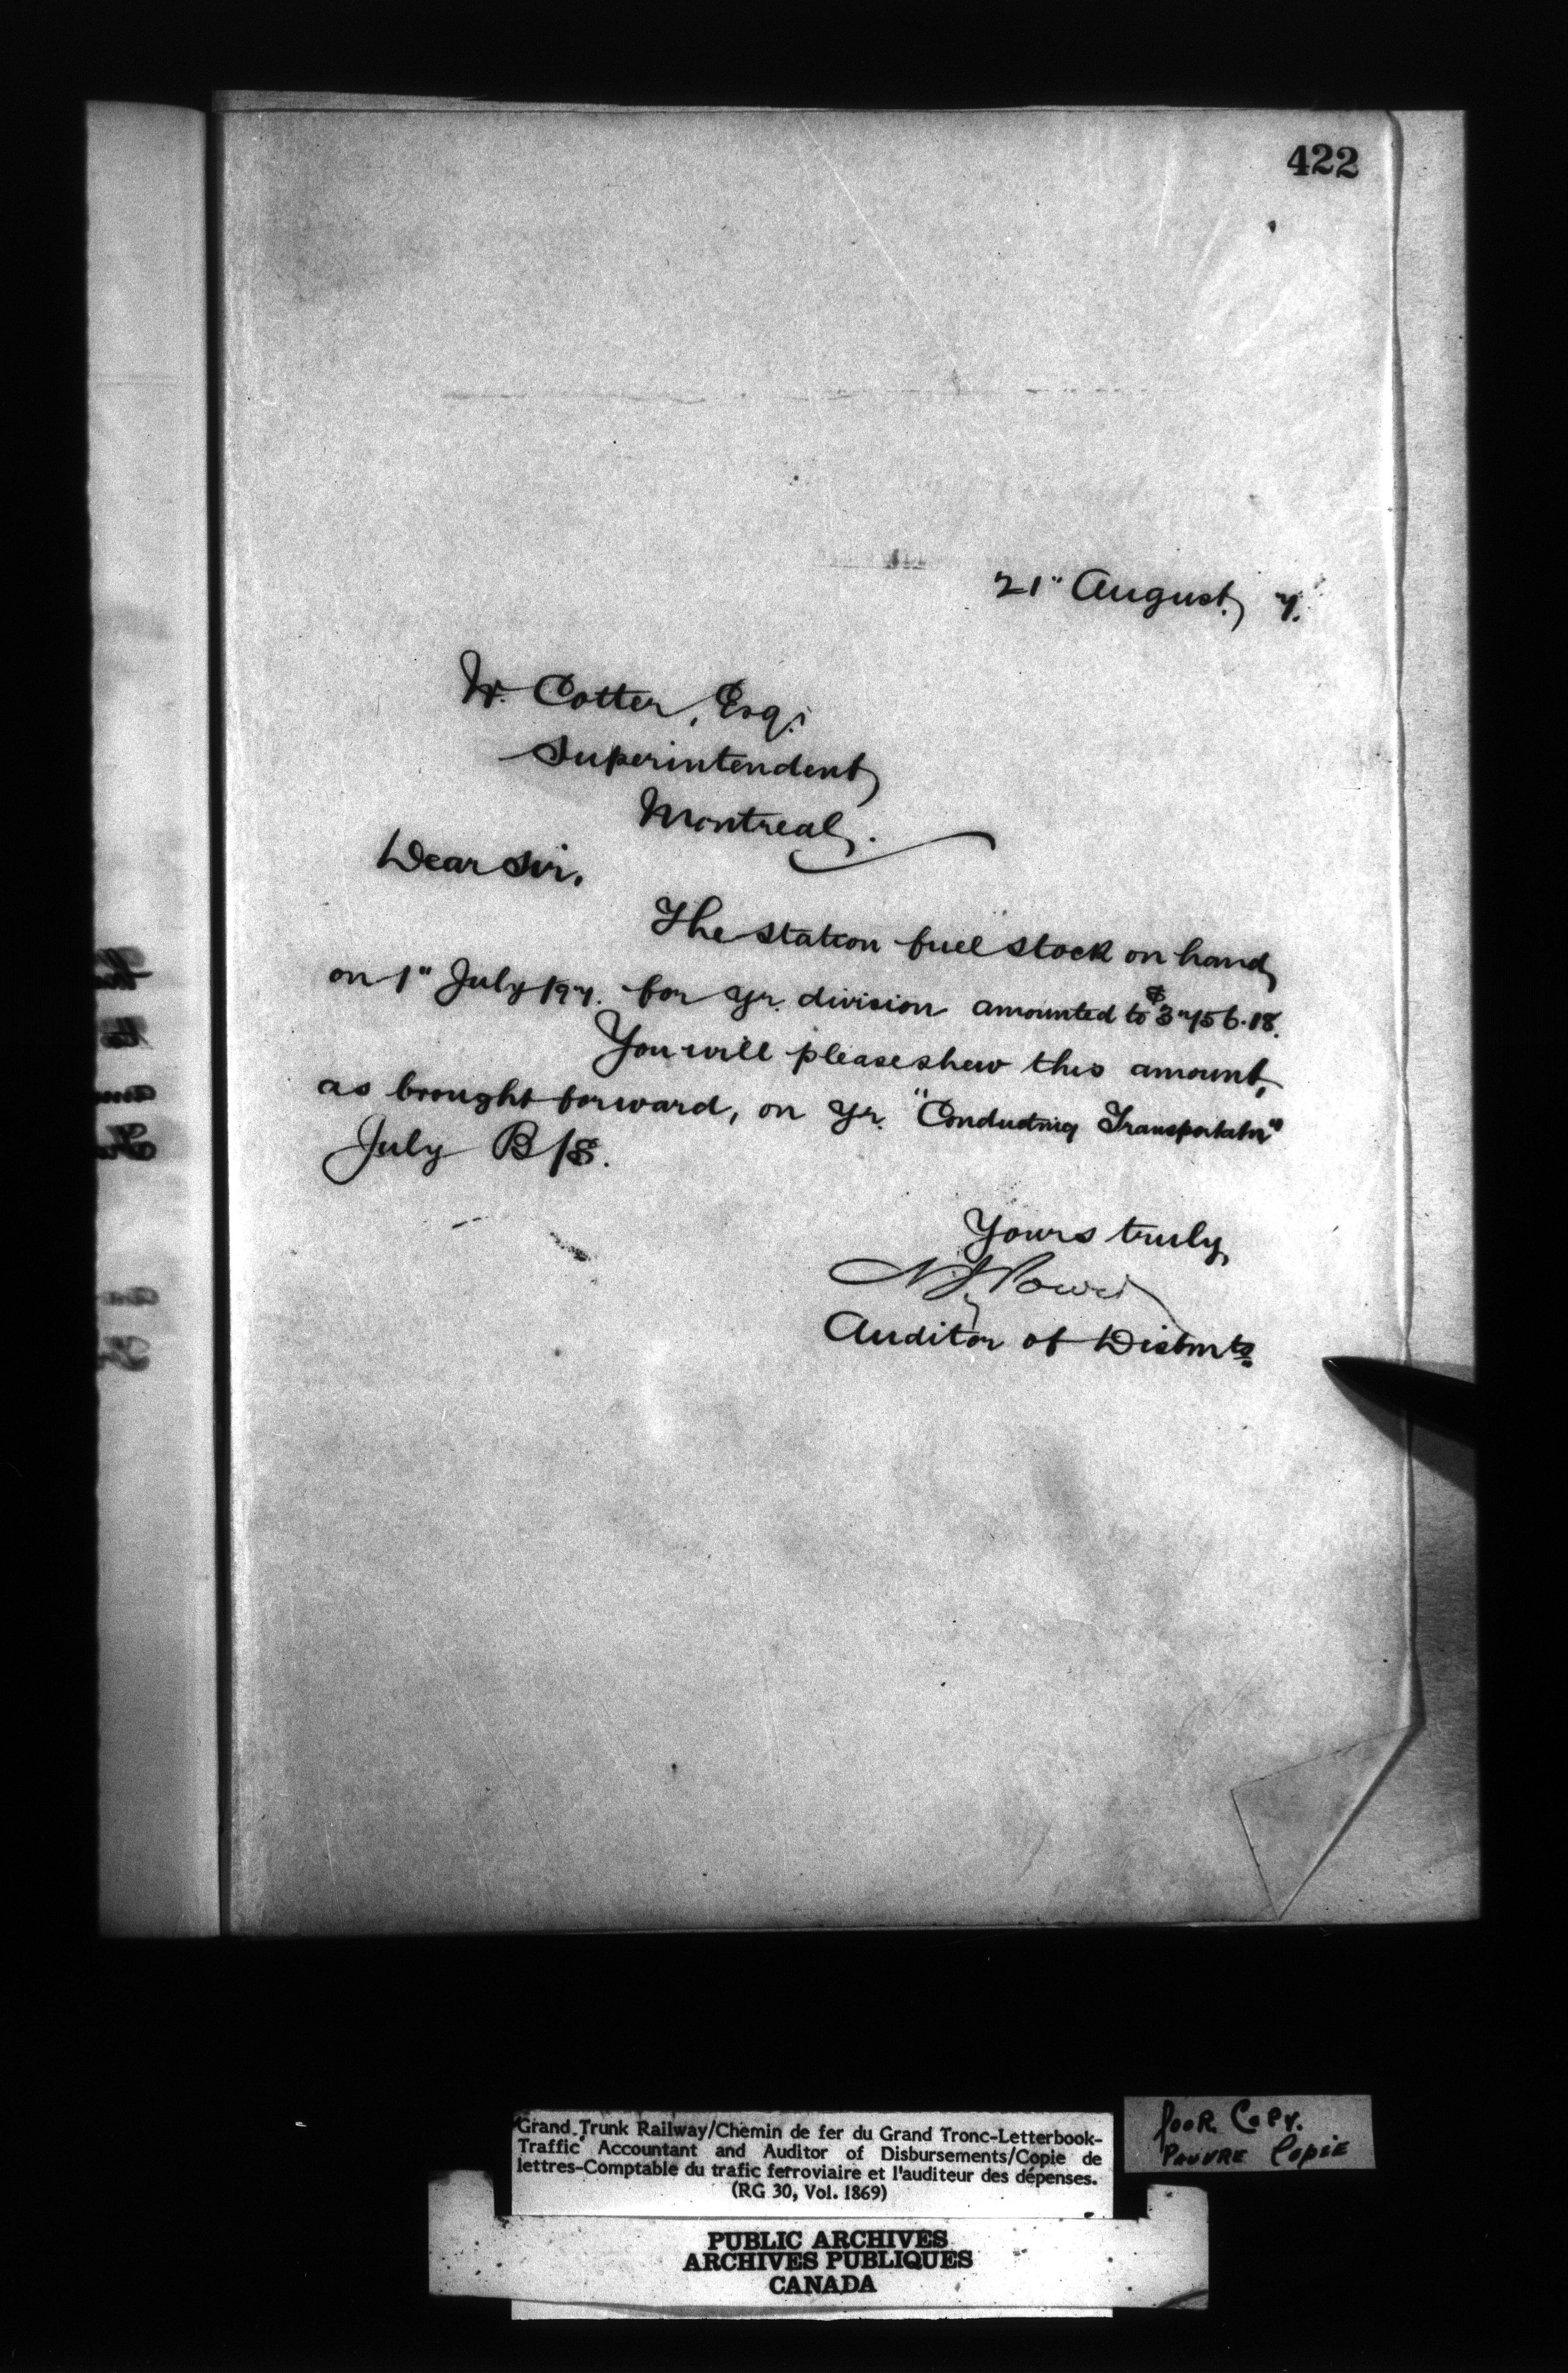 422
21" August, 7.
W. Cotter, Esq.
Superintendent,
Montreal.
Dear Sir,
The station fuel stock on hand,
on 1" July 197. for yr. division amounted to $3756.18.
You will please shew this amount,
as brought forward, on yr. "Conducting Transportatn"
July B/S.
Yours truly,
Auditor of Disbmts.
Grand Trunk Railway/Chemin de fer du Grand Tronc-Letterbook-
Traffic Accountant and Auditor of Disbursements/Copie de
lettres-Comptable du trafic ferroviaire et l'auditeur des dépenses.
(RG 30, Vol. 1869)
POOR COPY.
PAUVRE COPIE
PUBLIC ARCHIVES
ARCHIVES PUBLIQUES
CANADA